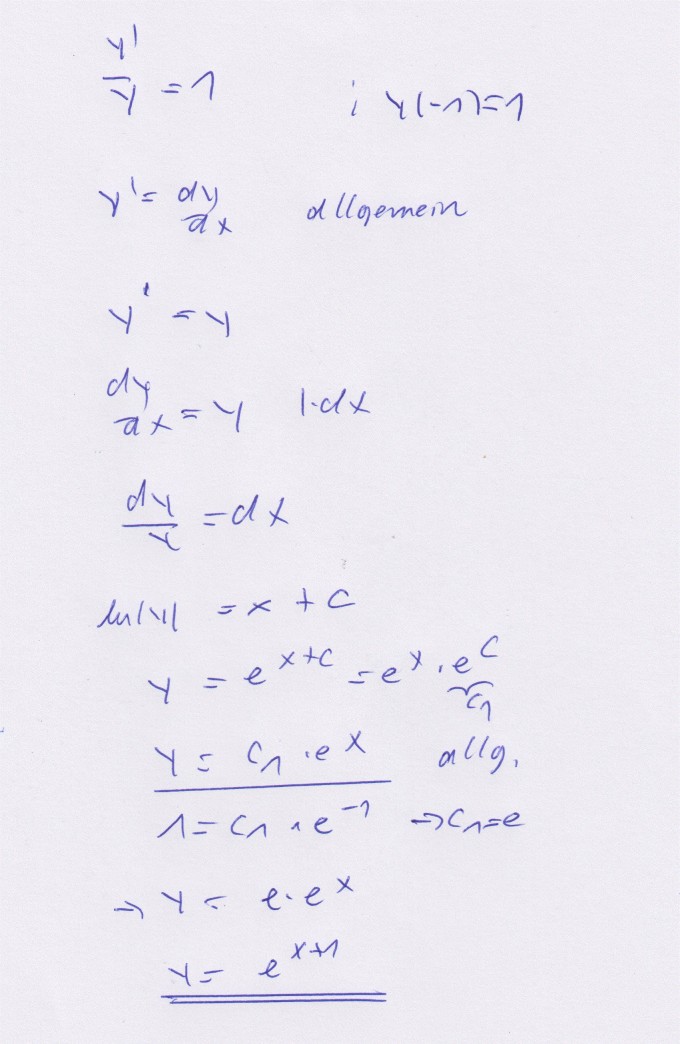 y'/y = 1 ; y(-1)=1
y' = dy/dx allgemein
y' = y
dy/dx = y |·dx
dy/y = dx
ln|y| = x + C
y = e^(x+C) = e^x · e^C
C₁
y = C₁ · e^x allg.
1 = C₁ · e^(-1) → C₁ = e
→ y = e · e^x
y = e^(x+1)